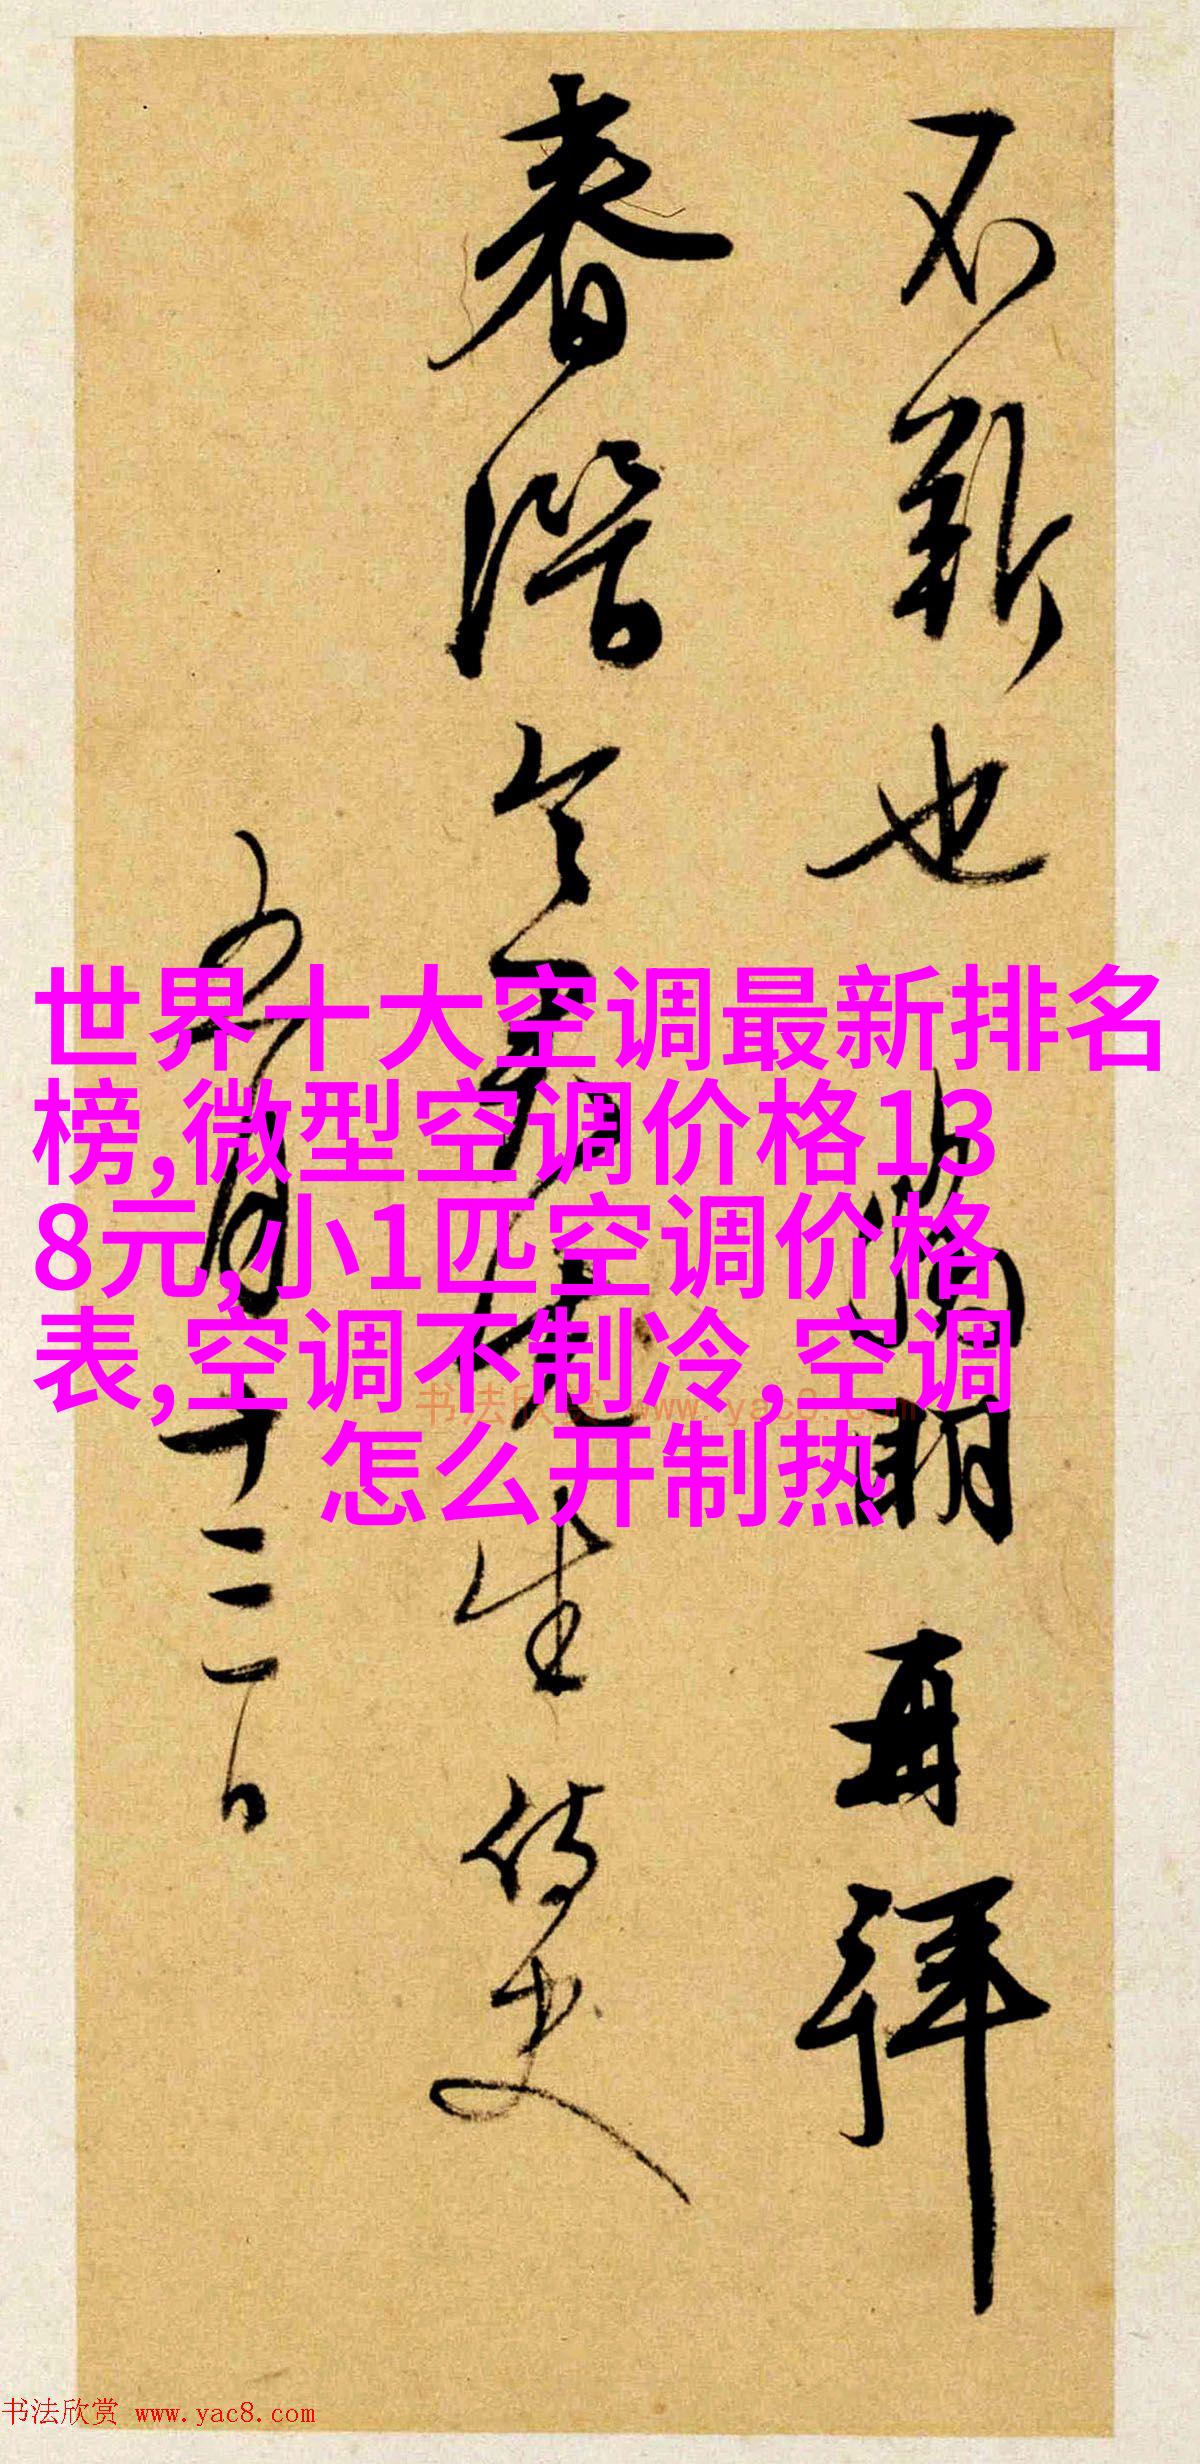 世界十大空调最新排名
榜,微型空调价格13
8元,小1匹空调价格
表,空调不制冷,空调
怎么开制热
不斩也
再拜
春潜
生侍史
五月十三日
书法欣赏 www.yac8.com
书法欣赏 www.yac8.com